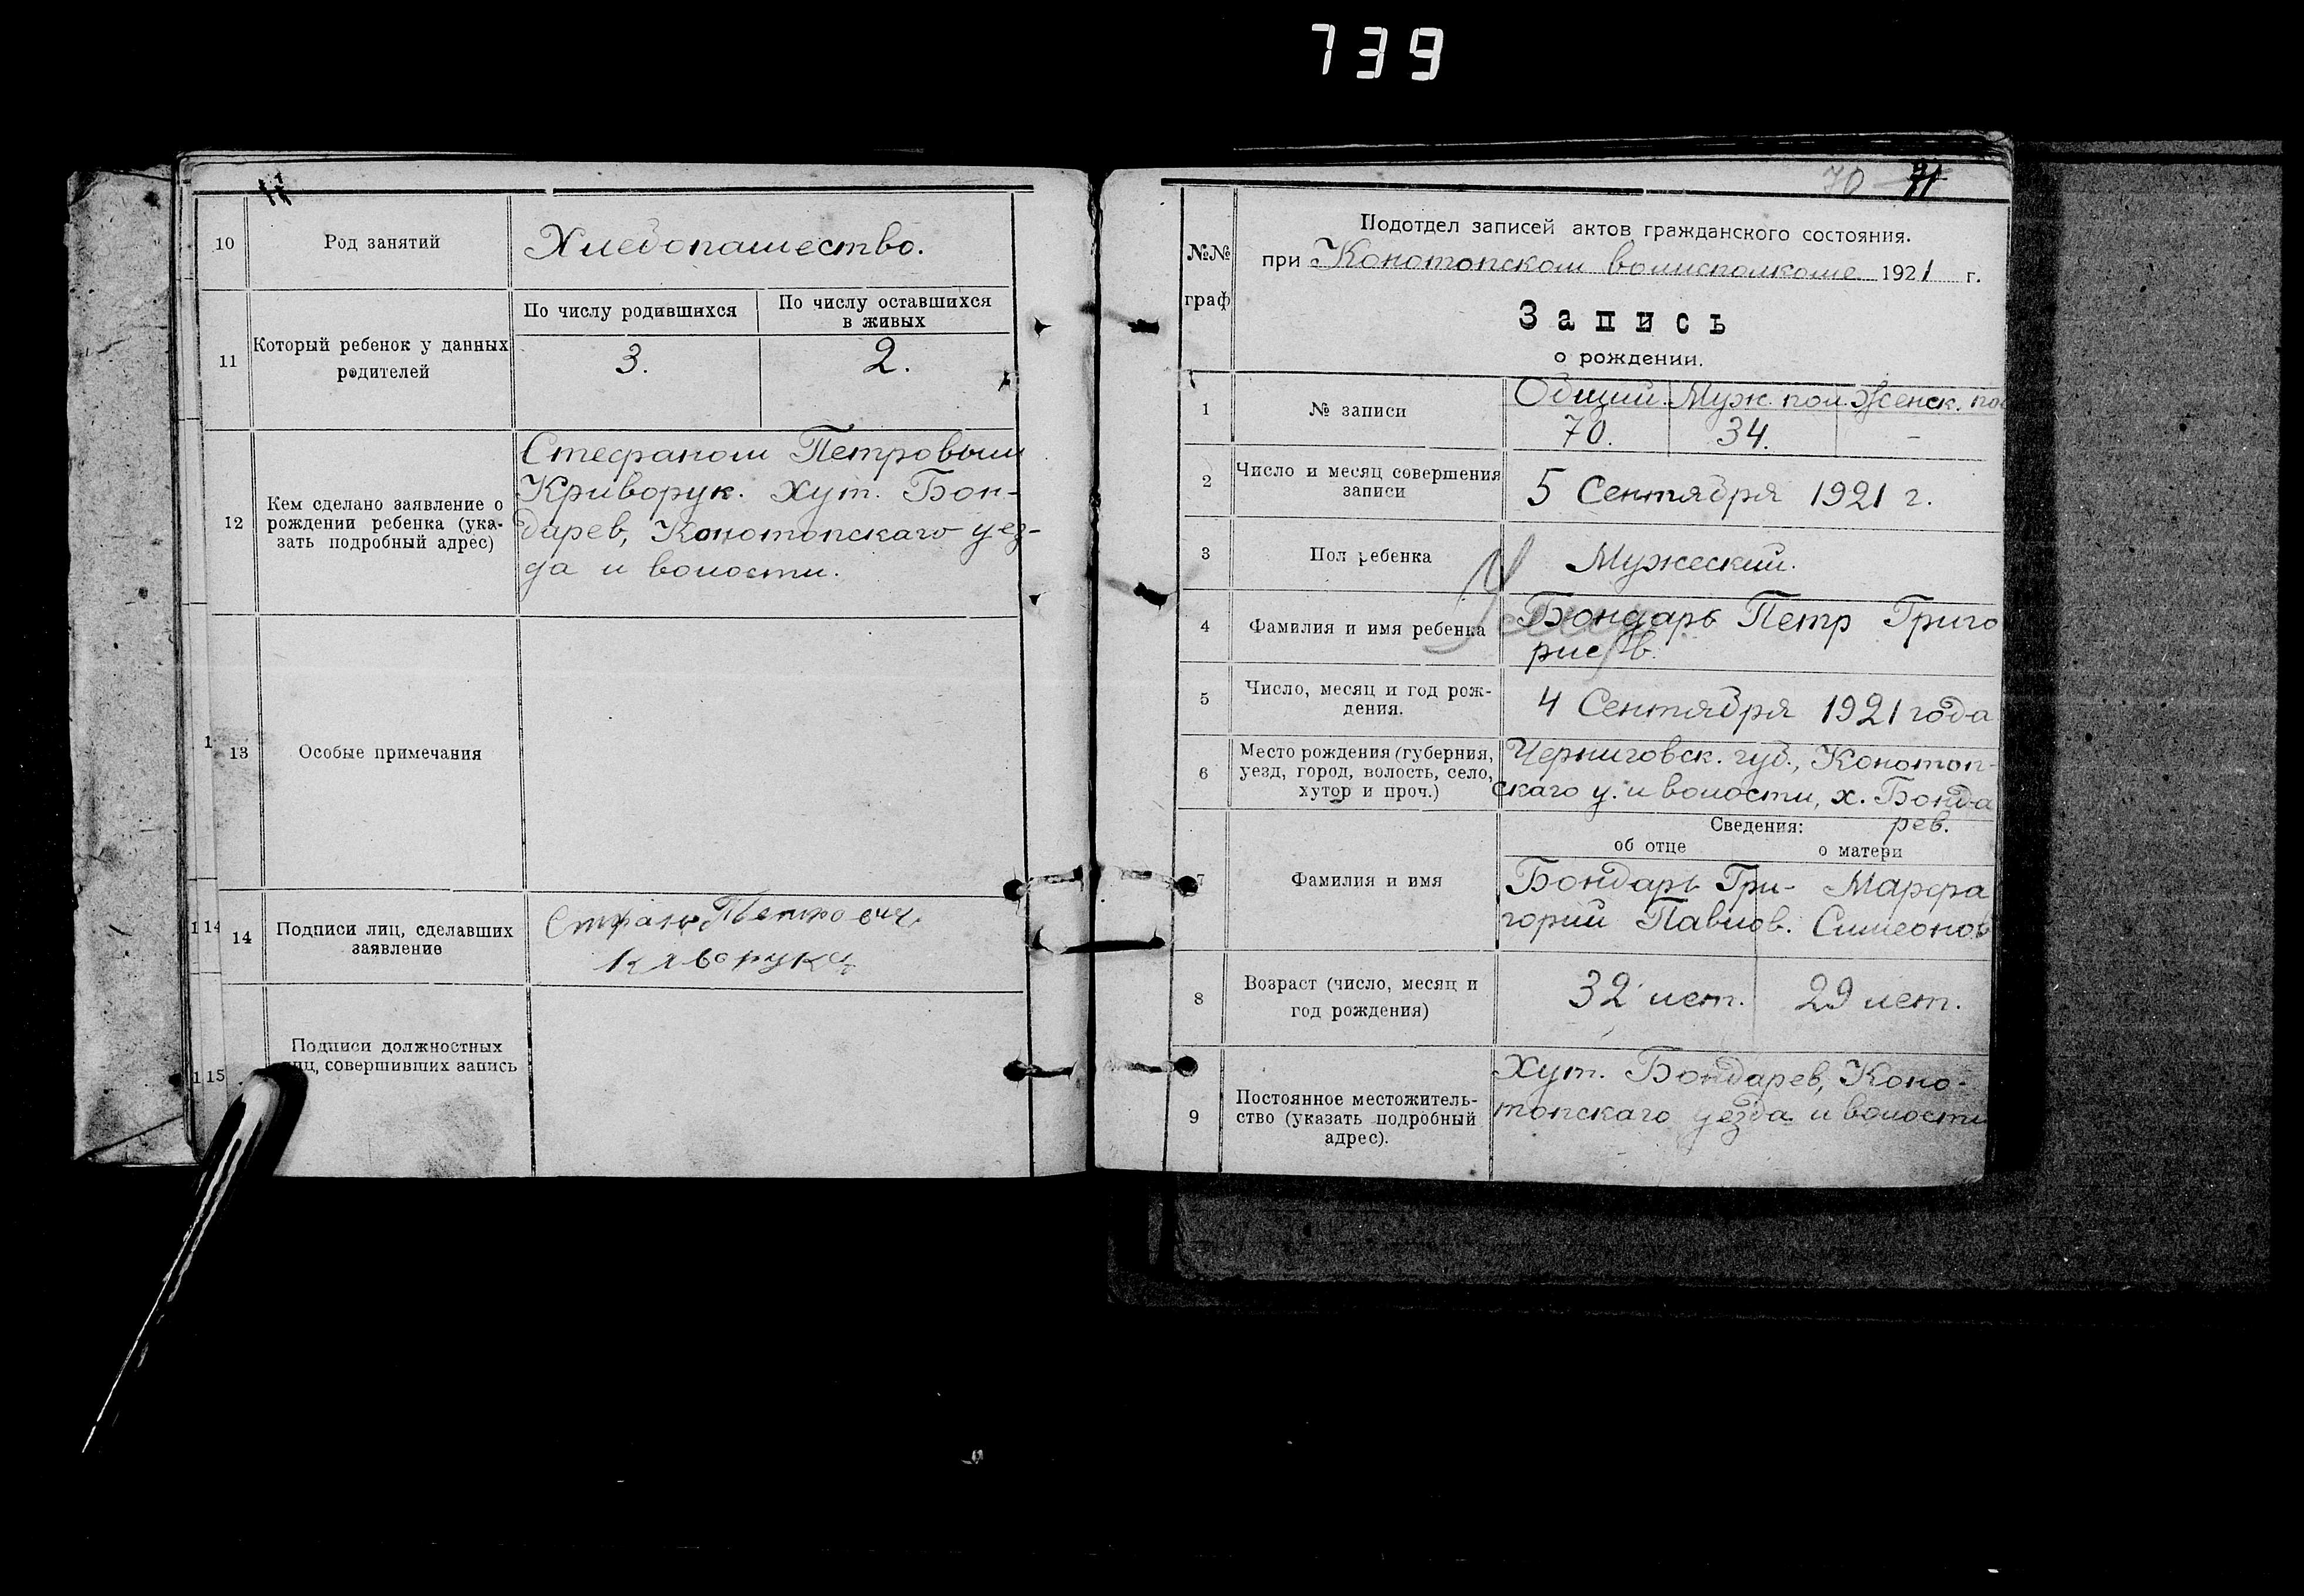 739
10
Род занятий
Хлебопашество.
11
Который ребенок у данных
родителей
По числу родившихся
По числу оставшихся
в живых
3.
2.
12
Кем сделано заявление о
рождении ребенка (ука-
зать подробный адрес)
Стефаном Петровым
Криворук. Хут. Бон-
дарев, Конотопскаго уез-
да и волости.
13
Особые примечания
14
Подписи лиц, сделавших
заявление
15
Подписи должностных
совершивших запись
70
№№
граф
Подотдел записей актов гражданского состояния.
при Конотопском волисполкоме 1921 г.
Запись
о рождении.
1
№ записи
Общий. Муж. пол. Женск. пол
70. 34. -
2
Число и месяц совершения
записи
5 Сентября 1921 г.
3
Пол ребенка
Мужеский.
4
Фамилия и имя ребенка
Бондарь Петр Григо
риев.
5
Число, месяц и год рож-
дения.
4 Сентября 1921 года
6
Место рождения (губерния,
уезд, город, волость, село,
хутор и проч.)
Черниговск. губ., Конотоп-
скаго у. и волости, х. Бонда
рев.
Сведения:
об отце
о матери
7
Фамилия и имя
Бондарь Гри-
горий Павлов.
Марфа
Симеонов
8
Возраст (число, месяц и
год рождения)
32 лет.
29 лет.
9
Постоянное местожитель-
ство (указать подробный
адрес).
Хут. Бондарев, Коно-
топскаго уезда и волости